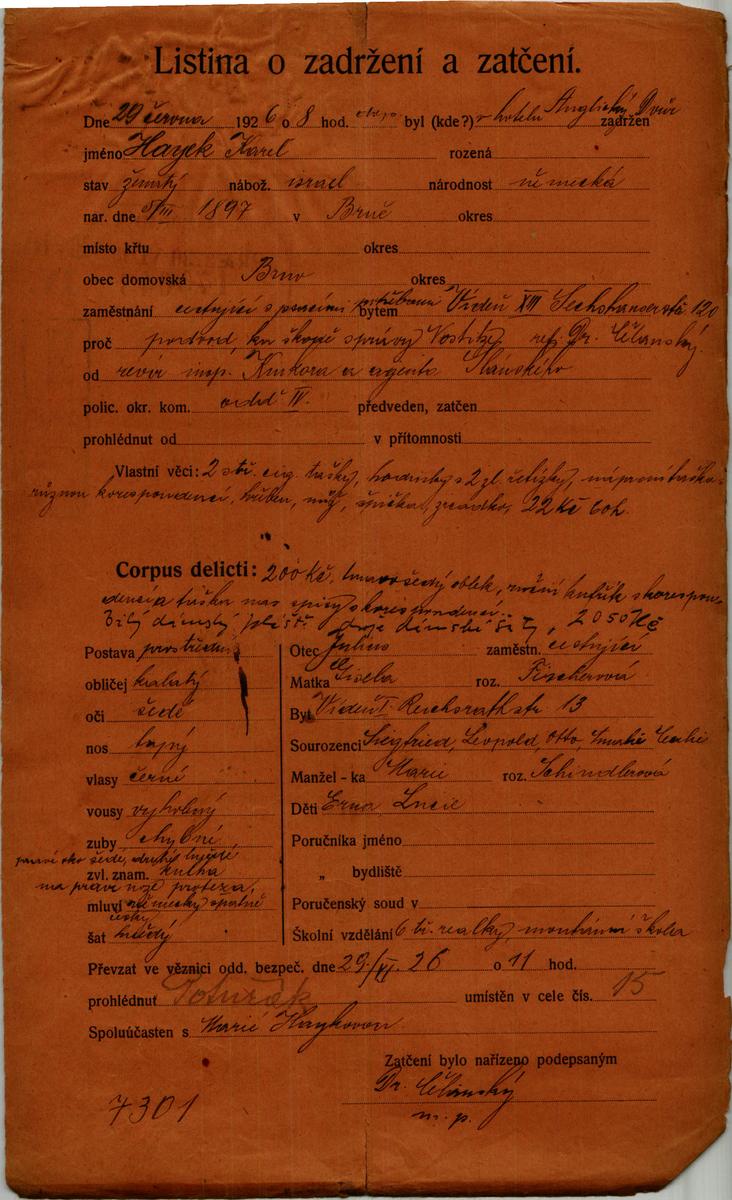 Listina o zadržení a zatčení.
Dne 29 června 1926 o 8 hod. byl (kde?) v hotelu Anglický Dvůr zadržen
jméno Hayek Karel rozená
stav ženatý nábož. israel národnost německá
nar. dne 5/III 1897 v Brně okres
místo křtu okres
obec domovská Brno okres
zaměstnání cestující s psacími potřebami bytem Vídeň XIII Sechshauserstr 120
proč podvod, ku škodě správy Nostitz ref. Dr. Čělanský.
od revír insp. Kmkora a agenta Slánského
polic. okr. kom. odd IV. předveden, zatčen
prohlédnut od v přítomnosti
Vlastní věci: 2 stř. cig. tašky, hodinky s 2 zl. řetízky, náprsní taška s
různou korespondencí, hřeben, nůž, špička, zrcadko, 22 Kč 60 h.
Corpus delicti: 200 Kč, tmavošedý oblek, ruční kufřík s korespon-
dencí a taška na spisy s korespondencí..
Bílý dámský plášť, dvoje dámské šaty, 2050 Kč
Postava prostřední
obličej kulatý
oči šedé
nos tupý
vlasy černé
vousy vyholený
zuby chybné,
pravé oko šedé, druhé hnědé
zvl. znam. kulhá
má pravé noze protéza,
mluví německy špatně
česky
šat hnědý
Otec Julius zaměstn. cestující
Matka Gisela roz. Fischerová
Byt Vídeň I. Reichsrathstr 13
Sourozenci Siegfried, Leopold, Otto, Amalie Cecilie
Manžel - ka Marie roz. Schindlerová
Děti Erna Lucie
Poručníka jméno
„ bydliště
Poručenský soud v
Školní vzdělání 6 tř. realky, montánní škola
Převzat ve věznici odd. bezpeč. dne 29./VI. 26 o 11 hod.
prohlédnut umístěn v cele čís. 15
Spoluúčasten s Marií Haykovou
Zatčení bylo nařízeno podepsaným
Dr. Čělanský
m. p.
7301